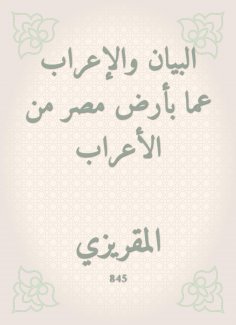 البيان والإعراب
عما بأرض مصر من
الأعراب
المقريزي
845